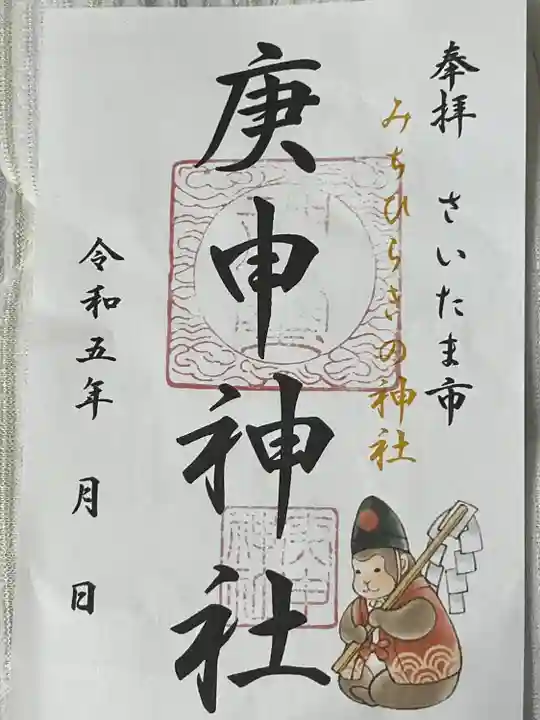 奉拝 さいたま市
みちひらきの神社
庚申神社
令和五年 月 日
庚申
神社